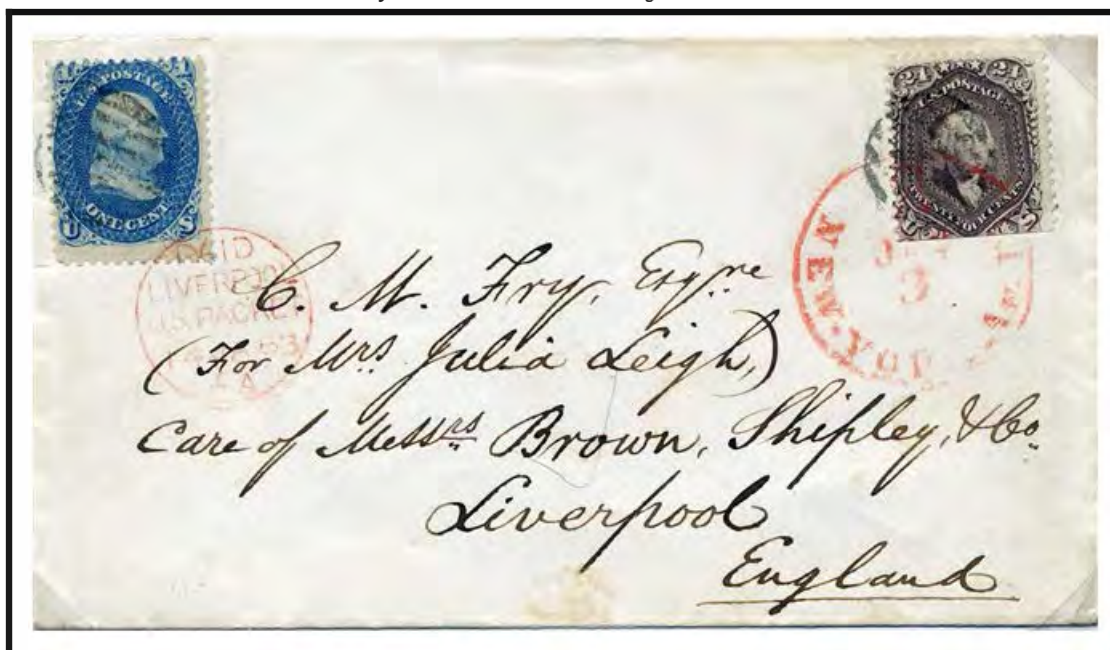 1 1
U.S. POSTAGE
ONE CENT
U S
24 24
U.S. POSTAGE
TWENTY FOUR CENTS
U S
PAID
LIVERPOOL
U.S. PACKET
5A
NEW YORK
3
C. M. Fry, Esqre
(For Mrs. Julia Leigh,)
Care of Messrs Brown, Shipley, & Co.
Liverpool
England